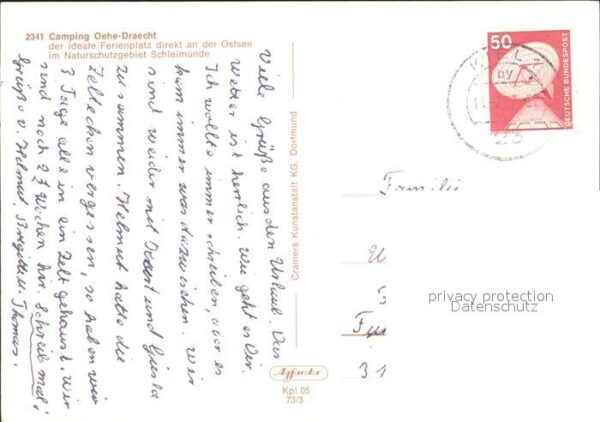 2341 Camping Oehe-Draecht
der ideale Ferienplatz direkt an der Ostsee
im Naturschutzgebiet Schleimünde
Viele Grüße aus dem Urlaub. Das
Wetter ist herrlich. Wie geht es Dir.
Ich wollte immer schreiben, aber es
kam immer was dazwischen. Wir
sind wieder mit und
zusammen. Helmut hatte die
Zeltstangen vergessen, so haben wir
3 Tage alle in ein Zelt gehaust. Wir
sind noch 2½ Wochen hier. Schreib mal!
Grüße v. Helmut, Birgitt u.
Thomas.
Cramers Kunstanstalt KG, Dortmund
Agfacolor
Kpl 05
73/3
50
DEUTSCHE BUNDESPOST
KIEL 1
23
Familie
privacy protection
Datenschutz
31